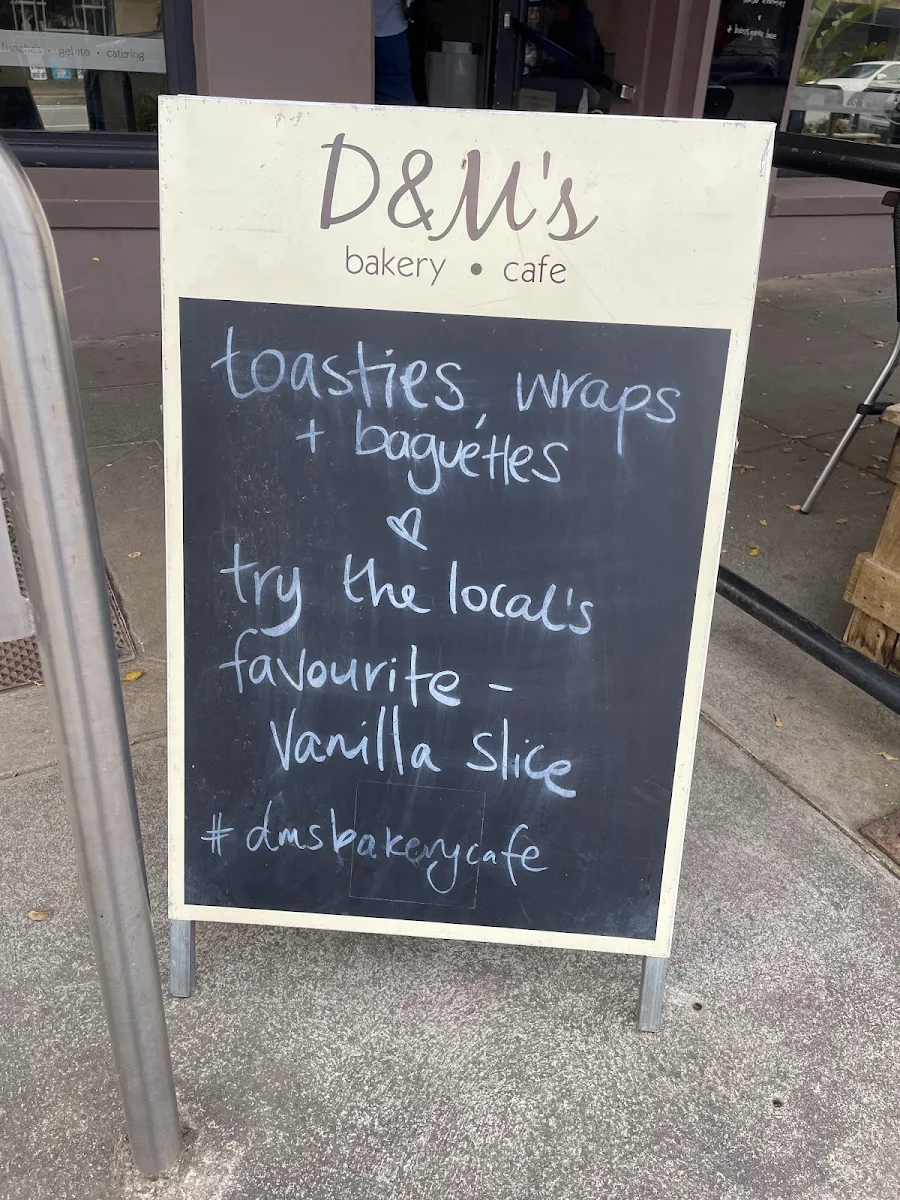 lunches • gelato • catering
D&M's
bakery • cafe
toasties, wraps
+ baguéttes
♡
try the local's
favourite -
Vanilla Slice
# dmsbakerycafe